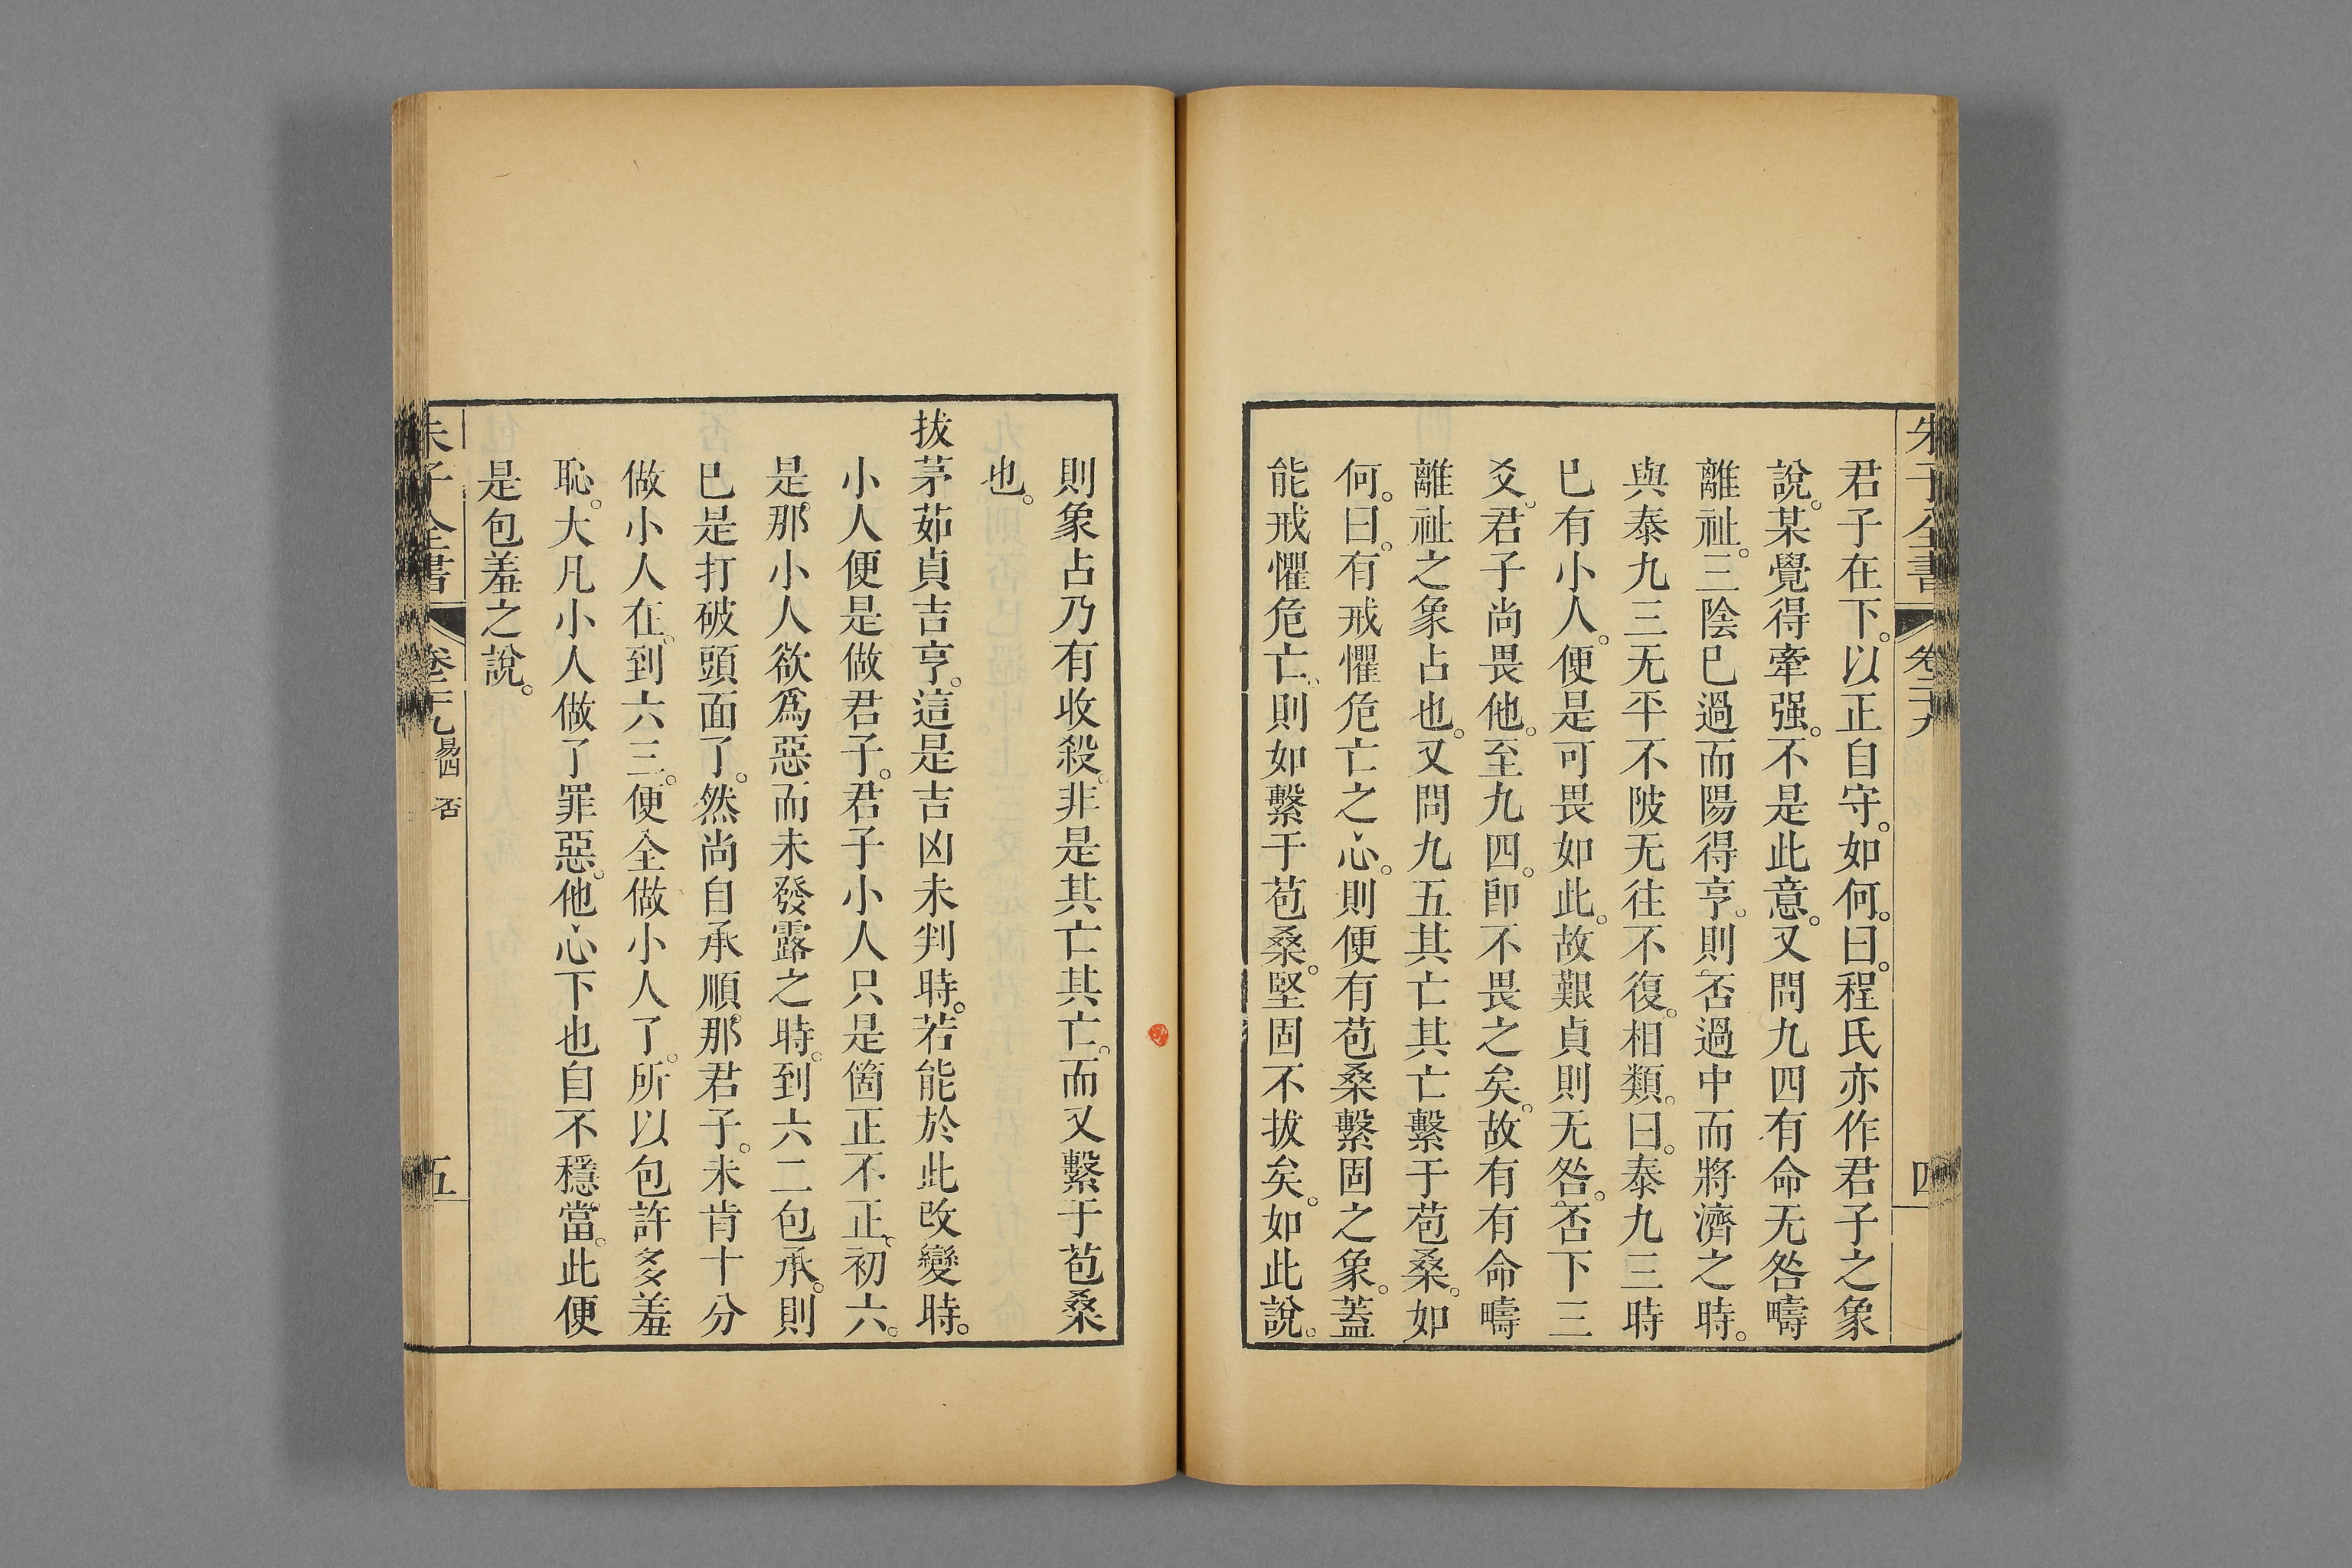 朱子全書 卷二十九 四
君子在下。以正自守。如何。曰。程氏亦作君子之象
說。某覺得牽强。不是此意。又問九四有命无咎疇
離祉。三陰已過而陽得亨。則否過中而將濟之時。
與泰九三无平不陂无往不復。相類。曰。泰九三時
已有小人。便是可畏如此。故艱貞則无咎。否下三
爻。君子尚畏他。至九四。卽不畏之矣。故有有命疇
離祉之象占也。又問九五其亡其亡繫于苞桑。如
何。曰。有戒懼危亡之心。則便有苞桑繫固之象。蓋
能戒懼危亡。則如繫于苞桑。堅固不拔矣。如此說。
則象占乃有收殺。非是其亡其亡。而又繫于苞桑
也。
拔茅茹貞吉亨。這是吉凶未判時。若能於此改變時。
小人便是做君子。君子小人只是箇正不正。初六。
是那小人欲爲惡而未發露之時。到六二包承。則
已是打破頭面了。然尚自承順那君子。未肯十分
做小人在。到六三。便全做小人了。所以包許多羞
恥。大凡小人做了罪惡。他心下也自不穩當。此便
是包羞之說。
朱子全書 卷二十九 易四 否 五